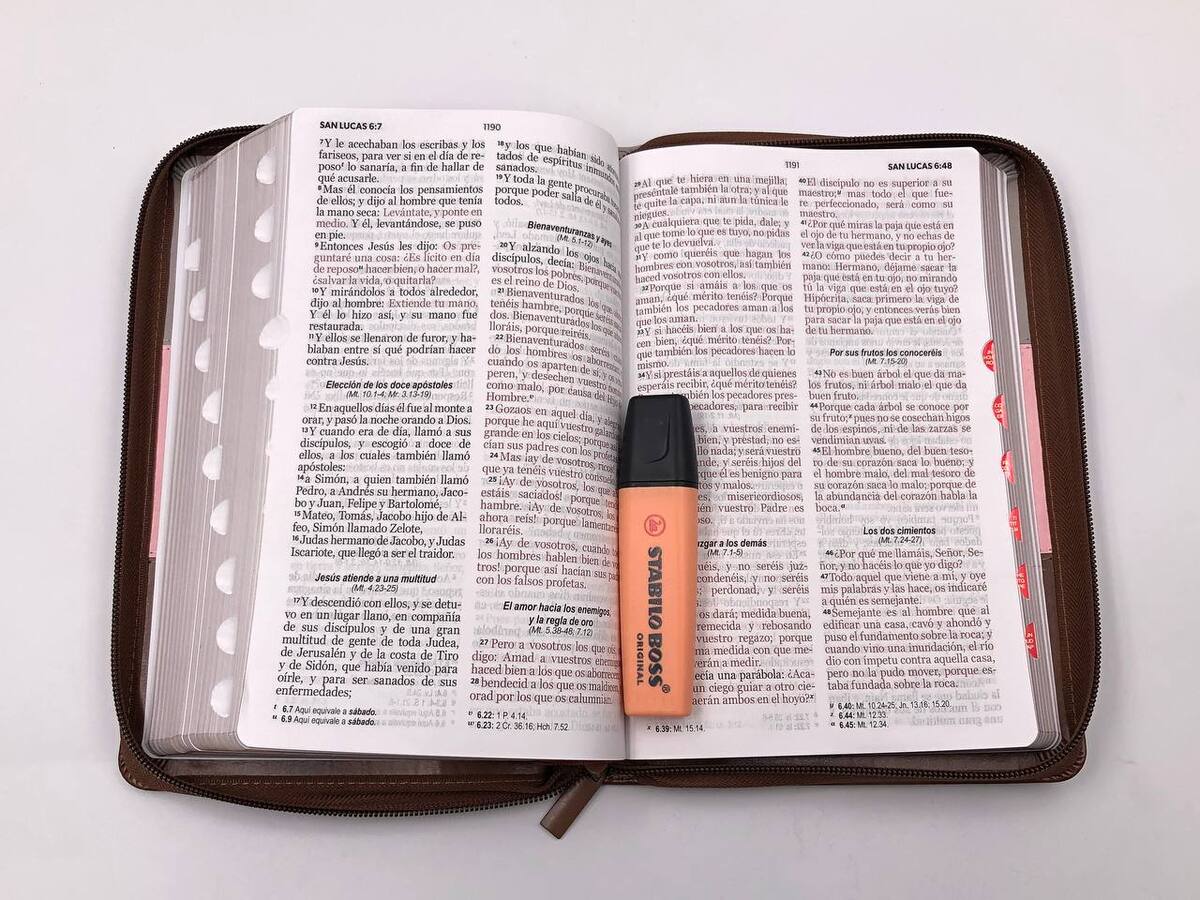 SAN LUCAS 6:7
1190
7Y le acechaban los escribas y los
fariseos, para ver si en el día de re-
poso lo sanaría, a fin de hallar de
qué acusarle.
8Mas él conocía los pensamientos
de ellos; y dijo al hombre que tenía
la mano seca: Levántate, y ponte en
medio. Y él, levantándose, se puso
en pie.
9Entonces Jesús les dijo: Os pre-
guntaré una cosa: ¿Es lícito en día
de reposo hacer bien, o hacer mal?,
¿salvar la vida, o quitarla?
10Y mirándolos a todos alrededor,
dijo al hombre: Extiende tu mano,
Y él lo hizo así, y su mano fue
restaurada.
11Y ellos se llenaron de furor, y ha-
blaban entre sí qué podrían hacer
contra Jesús.
Elección de los doce apóstoles
(Mt. 10.1-4; Mr. 3.13-19)
12En aquellos días él fue al monte a
orar, y pasó la noche orando a Dios.
13Y cuando era de día, llamó a sus
discípulos, y escogió a doce de
ellos, a los cuales también llamó
apóstoles:
14a Simón, a quien también llamó
Pedro, a Andrés su hermano, Jaco-
bo y Juan, Felipe y Bartolomé,
15Mateo, Tomás, Jacobo hijo de Al-
feo, Simón llamado Zelote,
16Judas hermano de Jacobo, y Judas
Iscariote, que llegó a ser el traidor.
Jesús atiende a una multitud
(Mt. 4.23-25)
17Y descendió con ellos, y se detu-
vo en un lugar llano, en compañía
de sus discípulos y de una gran
multitud de gente de toda Judea,
de Jerusalén y de la costa de Tiro
y de Sidón, que había venido para
oírle, y para ser sanados de sus
enfermedades;
6.7 Aquí equivale a sábado.
6.9 Aquí equivale a sábado.
18y los que habían sido
tados de espíritus
sanados.
19Y toda la gente procuraba
porque poder salía de él y
todos.
Bienaventuranzas y ayes
(Mt. 5.1-12)
20Y alzando los ojos
discípulos, decía:
vosotros los pobres, porque
es el reino de Dios.
21Bienaventurados los que
tenéis hambre, porque
dos. Bienaventurados los que
lloráis, porque reiréis.
22Bienaventurados seréis
do los hombres os
cuando os aparten de sí, y os
peren, y desechen vuestro
como malo, por causa del
Hombre.
23Gozaos en aquel día, y
porque he aquí vuestro
grande en los cielos; porque
sus padres con los profetas.
24Mas ¡ay de vosotros,
que ya tenéis vuestro
25¡Ay de vosotros, los que
estáis saciados! porque
hambre. ¡Ay de vosotros, los que
ahora reís! porque
lloraréis.
26¡Ay de vosotros, cuando
los hombres hablen bien de
tros! porque así hacían sus
con los falsos profetas.
El amor hacia los enemigos,
y la regla de oro
(Mt. 5.38-48; 7.12)
27Pero a vosotros los que
digo: Amad a vuestros
haced bien a los que os
28bendecid a los que os maldicen,
orad por los que os calumnian.
6.22: 1 P. 4.14.
6.23: 2 Cr. 36.16; Hch. 7.52.
1191
SAN LUCAS 6:48
29Al que te hiera en una mejilla,
preséntale también la otra; y al que
te quite la capa, ni aun la túnica le
niegues.
30A cualquiera que te pida, dale; y
al que tome lo que es tuyo, no pidas
que te lo devuelva.
31Y como queréis que hagan los
hombres con vosotros, así también
haced vosotros con ellos.
32Porque si amáis a los que os
aman, ¿qué mérito tenéis? Porque
también los pecadores aman a los
que los aman.
33Y si hacéis bien a los que os ha-
cen bien, ¿qué mérito tenéis? Por-
que también los pecadores hacen lo
mismo.
34Y si prestáis a aquellos de quienes
esperáis recibir, ¿qué mérito tenéis?
también los pecadores pres-
pecadores, para recibir
a vuestros enemi-
bien, y prestad, no es-
nada; y será vuestro
y seréis hijos del
él es benigno para
y malos.
misericordiosos,
vuestro Padre es
a los demás
(Mt. 7.1-5)
y no seréis juz-
y no seréis
perdonad, y seréis
os dará; medida buena,
remecida y rebosando
vuestro regazo; porque
medida con que me-
a medir.
una parábola: ¿Aca-
ciego guiar a otro cie-
ambos en el hoyo?
6.39: Mt. 15.14.
40El discípulo no es superior a su
maestro; mas todo el que fue-
re perfeccionado, será como su
maestro.
41¿Por qué miras la paja que está en
el ojo de tu hermano, y no echas de
ver la viga que está en tu propio ojo?
42¿O cómo puedes decir a tu her-
mano: Hermano, déjame sacar la
paja que está en tu ojo, no mirando
tú la viga que está en el ojo tuyo?
Hipócrita, saca primero la viga de
tu propio ojo, y entonces verás bien
para sacar la paja que está en el ojo
de tu hermano.
Por sus frutos los conoceréis
(Mt. 7.15-20)
43No es buen árbol el que da ma-
los frutos, ni árbol malo el que da
buen fruto.
44Porque cada árbol se conoce por
su fruto; pues no se cosechan higos
de los espinos, ni de las zarzas se
vendimian uvas.
45El hombre bueno, del buen teso-
ro de su corazón saca lo bueno; y
el hombre malo, del mal tesoro de
su corazón saca lo malo; porque de
la abundancia del corazón habla la
boca.
Los dos cimientos
(Mt. 7.24-27)
46¿Por qué me llamáis, Señor, Se-
ñor, y no hacéis lo que yo digo?
47Todo aquel que viene a mí, y oye
mis palabras y las hace, os indicaré
a quién es semejante.
48Semejante es al hombre que al
edificar una casa, cavó y ahondó y
puso el fundamento sobre la roca; y
cuando vino una inundación, el río
dio con ímpetu contra aquella casa,
pero no la pudo mover, porque es-
taba fundada sobre la roca.
6.40: Mt. 10.24-25; Jn. 13.16; 15.20.
6.44: Mt. 12.33.
6.45: Mt. 12.34.
STABILO BOSS®
ORIGINAL